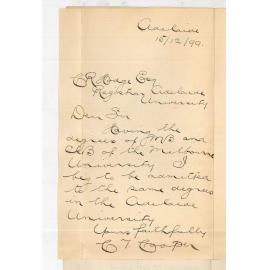 Adelaide
15/12/99.
C R Hodge Esq
Registrar Adelaide
University
Dear Sir
Having the
degrees of MB and
ChB of the Melbourne
University I
beg to be admitted
to the same degrees
in the Adelaide
University
Yours faithfully
C T Cooper